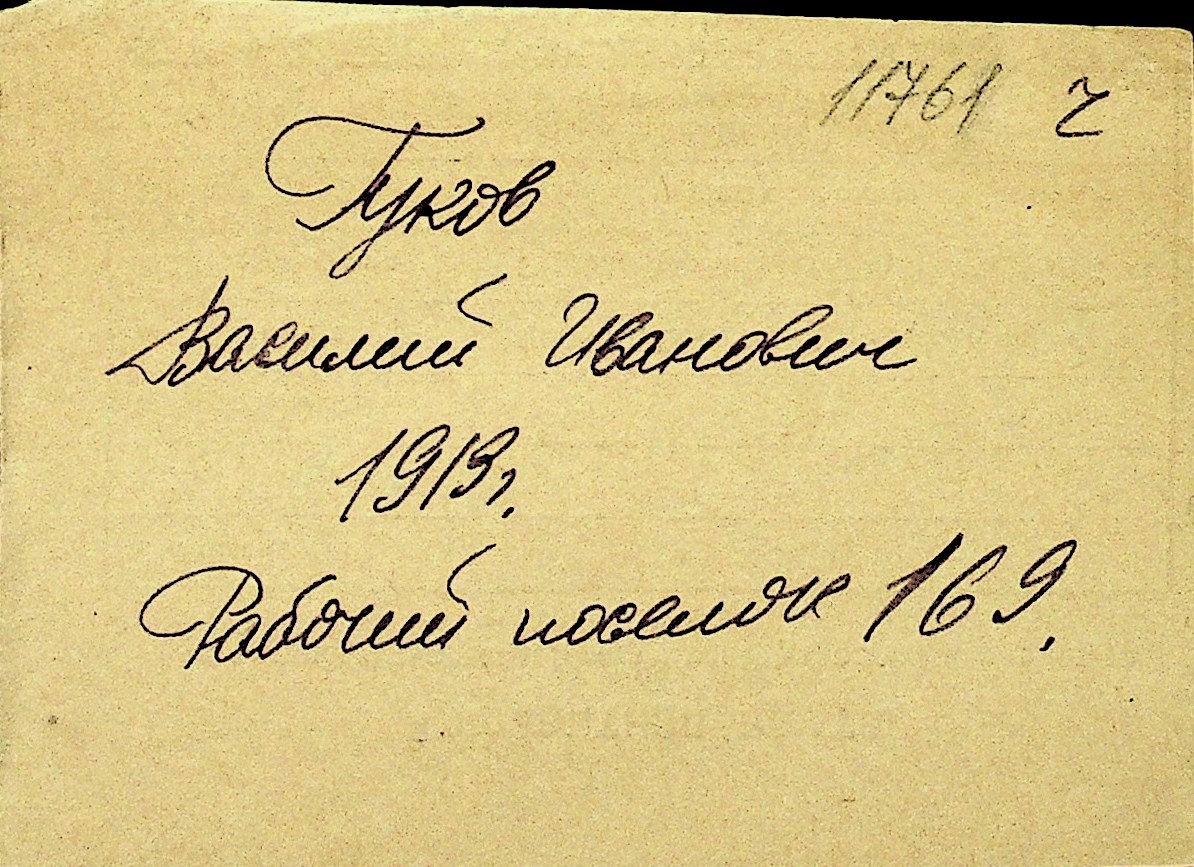 11761 ч
Гуков
Василий Иванович
1919г.
Рабочий поселок 169.